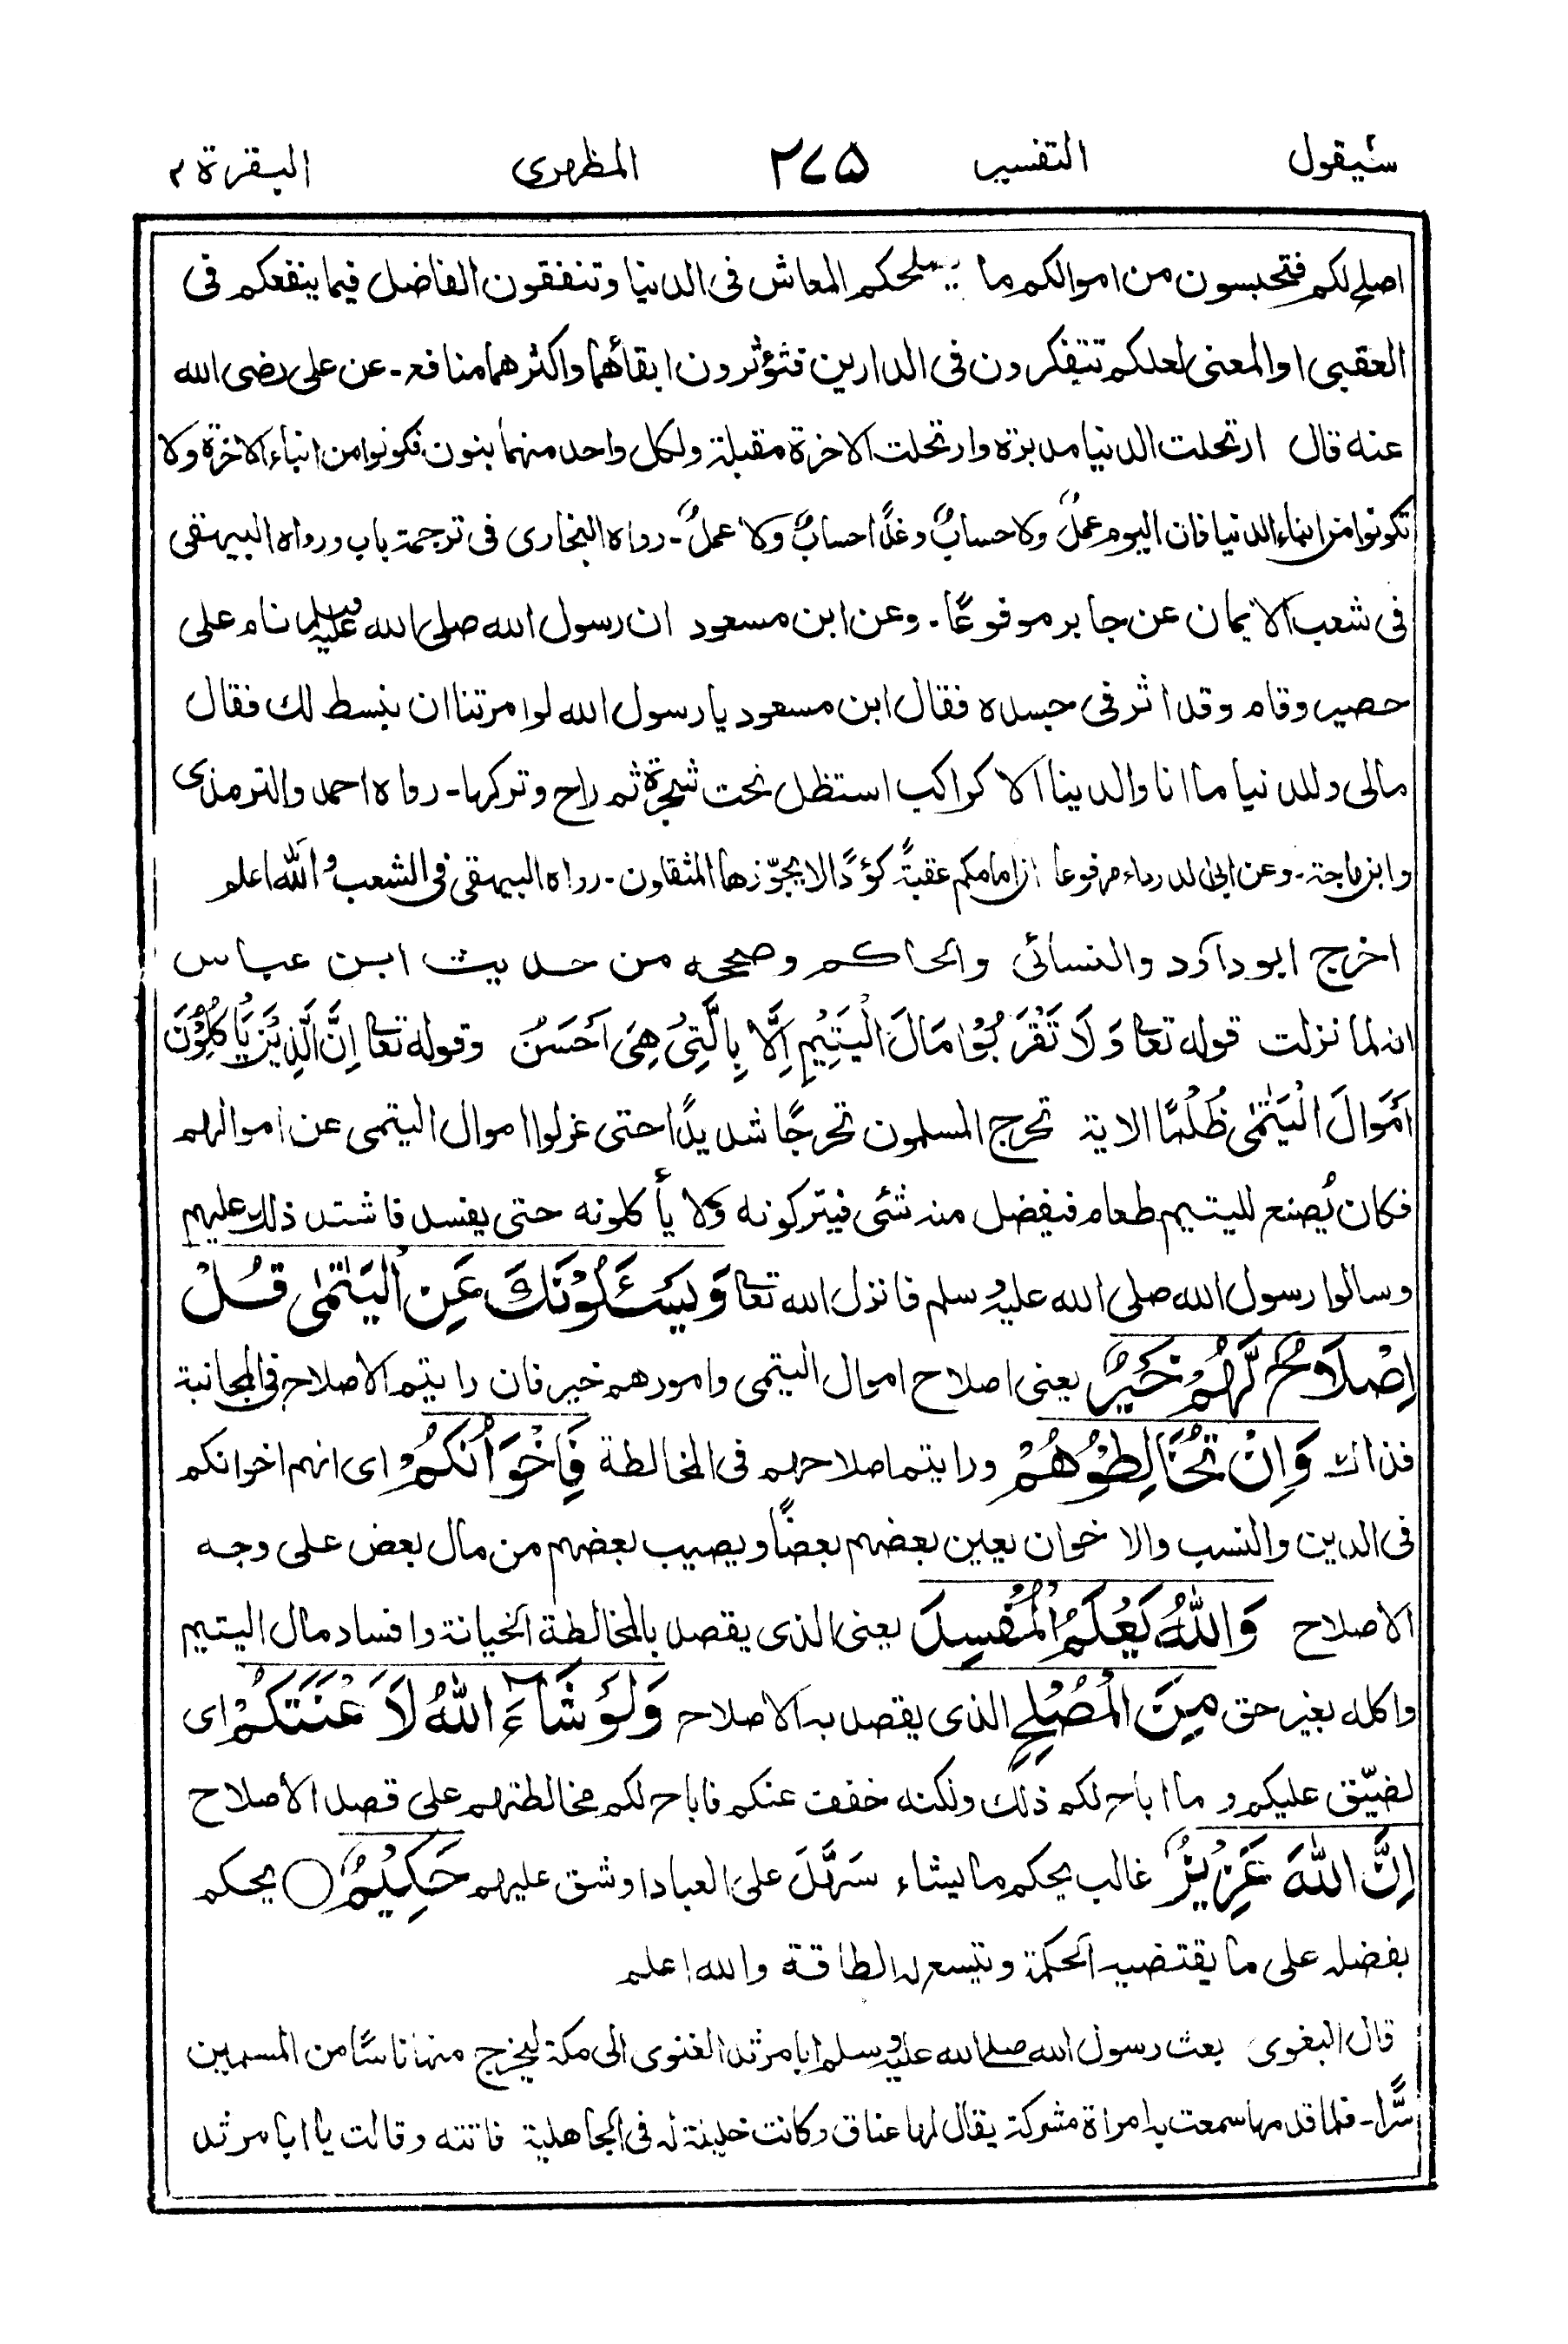 سيقول التفسير ٢٧٥ المظهرى البقرة ٢
اصلح لكم فتحبسون من اموالكم ما يصلحكم المعاش فى الدنيا وتنفقون الفاضل فيما ينفعكم فى
العقبى او المعنى لعلكم تتفكرون فى الدارين فتؤثرون ابقأهما واكثرهما منافع ـ عن على رضى الله
عنه قال ارتحلت الدنيا مدبرة وارتحلت الاخرة مقبلة ولكل واحد منهما بنون فكونوا من ابناء الاخرة ولا
تكونوا من ابناء الدنيا فان اليوم عملٌ ولا حسابٌ وغدًا حسابٌ ولا عملٌ ـ رواه البخارى فى ترجمة باب ورواه البيهقى
فى شعب الايمان عن جابر مرفوعًا ـ وعن ابن مسعود ان رسول الله صلى الله عليه وسلم نام على
حصير وقام وقد اثر فى جسده فقال ابن مسعود يا رسول الله لو امرتنا ان نبسط لك فقال
مالى وللدنيا ما انا والدينا الا كراكب استظل تحت شجرة ثم راح وتركها ـ رواه احمد والترمذى
وابن ماجة ـ وعن ابى الدرداء مرفوعا ان امامكم عقبةً كؤدًا لا يجوّزها المثقلون ـ رواه البيهقى فى الشعب والله اعلم
اخرج ابو داؤد والنسائى والحاكم وصححه من حديث ابن عباس
انه لما نزلت قوله تعالى وَلَا تَقْرَبُوْا مَالَ الْيَتِيْمِ اِلَّا بِالَّتِىْ هِىَ اَحْسَنُ وقوله تعالى اِنَّ الَّذِيْنَ يَأْكُلُوْنَ
اَمْوَالَ الْيَتٰمٰى ظُلْمًا الاية تحرج المسلمون تحرجًا شديدًا حتى عزلوا اموال اليتمى عن اموالهم
فكان يُصنع لليتيم طعام فيفضل منه شئى فيتركونه ولا يأكلونه حتى يفسد فاشتد ذلك عليهم
وسالوا رسول الله صلى الله عليه وسلم فانزل الله تعالى وَيَسْـَٔلُوْنَكَ عَنِ الْيَتٰمٰى قُلْ
اِصْلَاحٌ لَّهُمْ خَيْرٌ يعنى اصلاح اموال اليتمى وامورهم خير فان رايتم الاصلاح فى المجانبة
فذاك وَاِنْ تُخَالِطُوْهُمْ ورايتم اصلاحهم فى المخالطة فَاِخْوَانُكُمْ اى انهم اخوانكم
فى الدين والنسب والاخوان يعين بعضهم بعضًا ويصيب بعضهم من مال بعض على وجه
الاصلاح وَاللّٰهُ يَعْلَمُ الْمُفْسِدَ يعنى الذى يقصد بالمخالطة الخيانة وافساد مال اليتيم
واكله بغير حق مِنَ الْمُصْلِحِ الذى يقصد به الاصلاح وَلَوْ شَآءَ اللّٰهُ لَاَعْنَتَكُمْ اى
لضيّق عليكم وما اباح لكم ذلك ولكنه خفف عنكم فاباح لكم مخالطتهم على قصد الاصلاح
اِنَّ اللّٰهَ عَزِيْزٌ غالب يحكم ما يشاء سَهَّلَ على العباد او شق عليهم حَكِيْمٌ ○ يحكم
بفضله على ما يقتضيه الحكمة وتتسع له الطاقة والله اعلم
قال البغوى بعث رسول الله صلى الله عليه وسلم ابا مرثد الغنوى الى مكة ليخرج منها ناسًا من المسمين
سرًّا ـ فلما قدمها سمعت به امراة مشركة يقال لها عناق وكانت خليفة له فى الجاهلية فاتته وقالت يا ابا مرثد